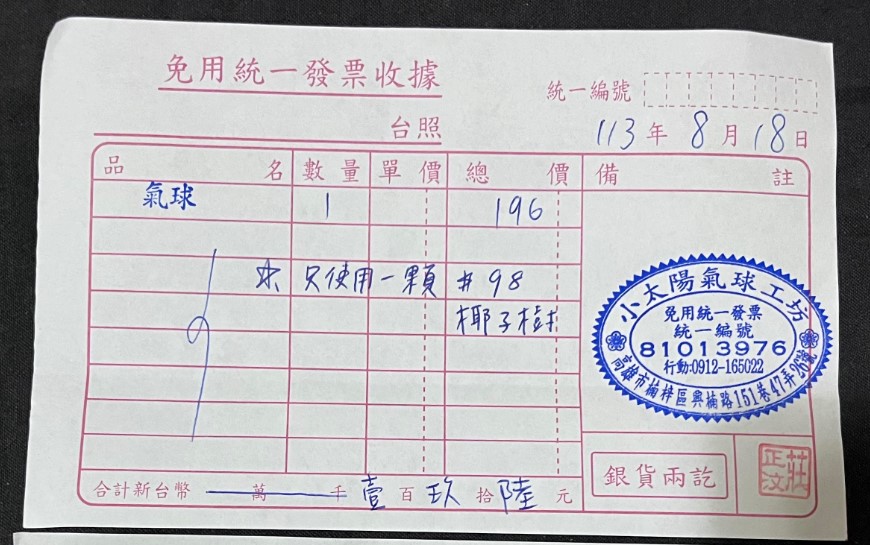 免用統一發票收據
統一編號
台照
113年8月18日
品名 數量 單價 總價 備註
氣球 1 196
☆ 只使用一顆 #98
椰子樹
小太陽氣球工坊
免用統一發票
統一編號
81013976
行動:0912-165022
高雄市楠梓區興楠路151巷47弄26號
合計新台幣 萬 千 壹 百 玖 拾 陸 元
銀貨兩訖
莊正汶